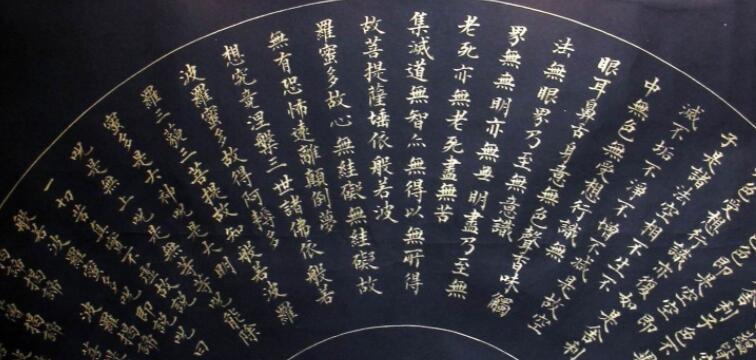 子是諸法空相不生不
滅不垢不淨不增不減是故空
中無色無受想行識無
眼耳鼻舌身意無色聲香味觸
法無眼界乃至無意識
界無無明亦無無明盡乃至無
老死亦無老死盡無苦
集滅道無智亦無得以無所得
故菩提薩埵依般若波
羅蜜多故心無罣礙無罣礙故
無有恐怖遠離顛倒夢
想究竟涅槃三世諸佛依般若
波羅蜜多故得阿耨多
羅三藐三菩提故知般若波羅
蜜多是大神呪是大明
呪是無上呪是無等等呪能除
一切苦真實不虛故說
般若波羅蜜多呪即說呪曰